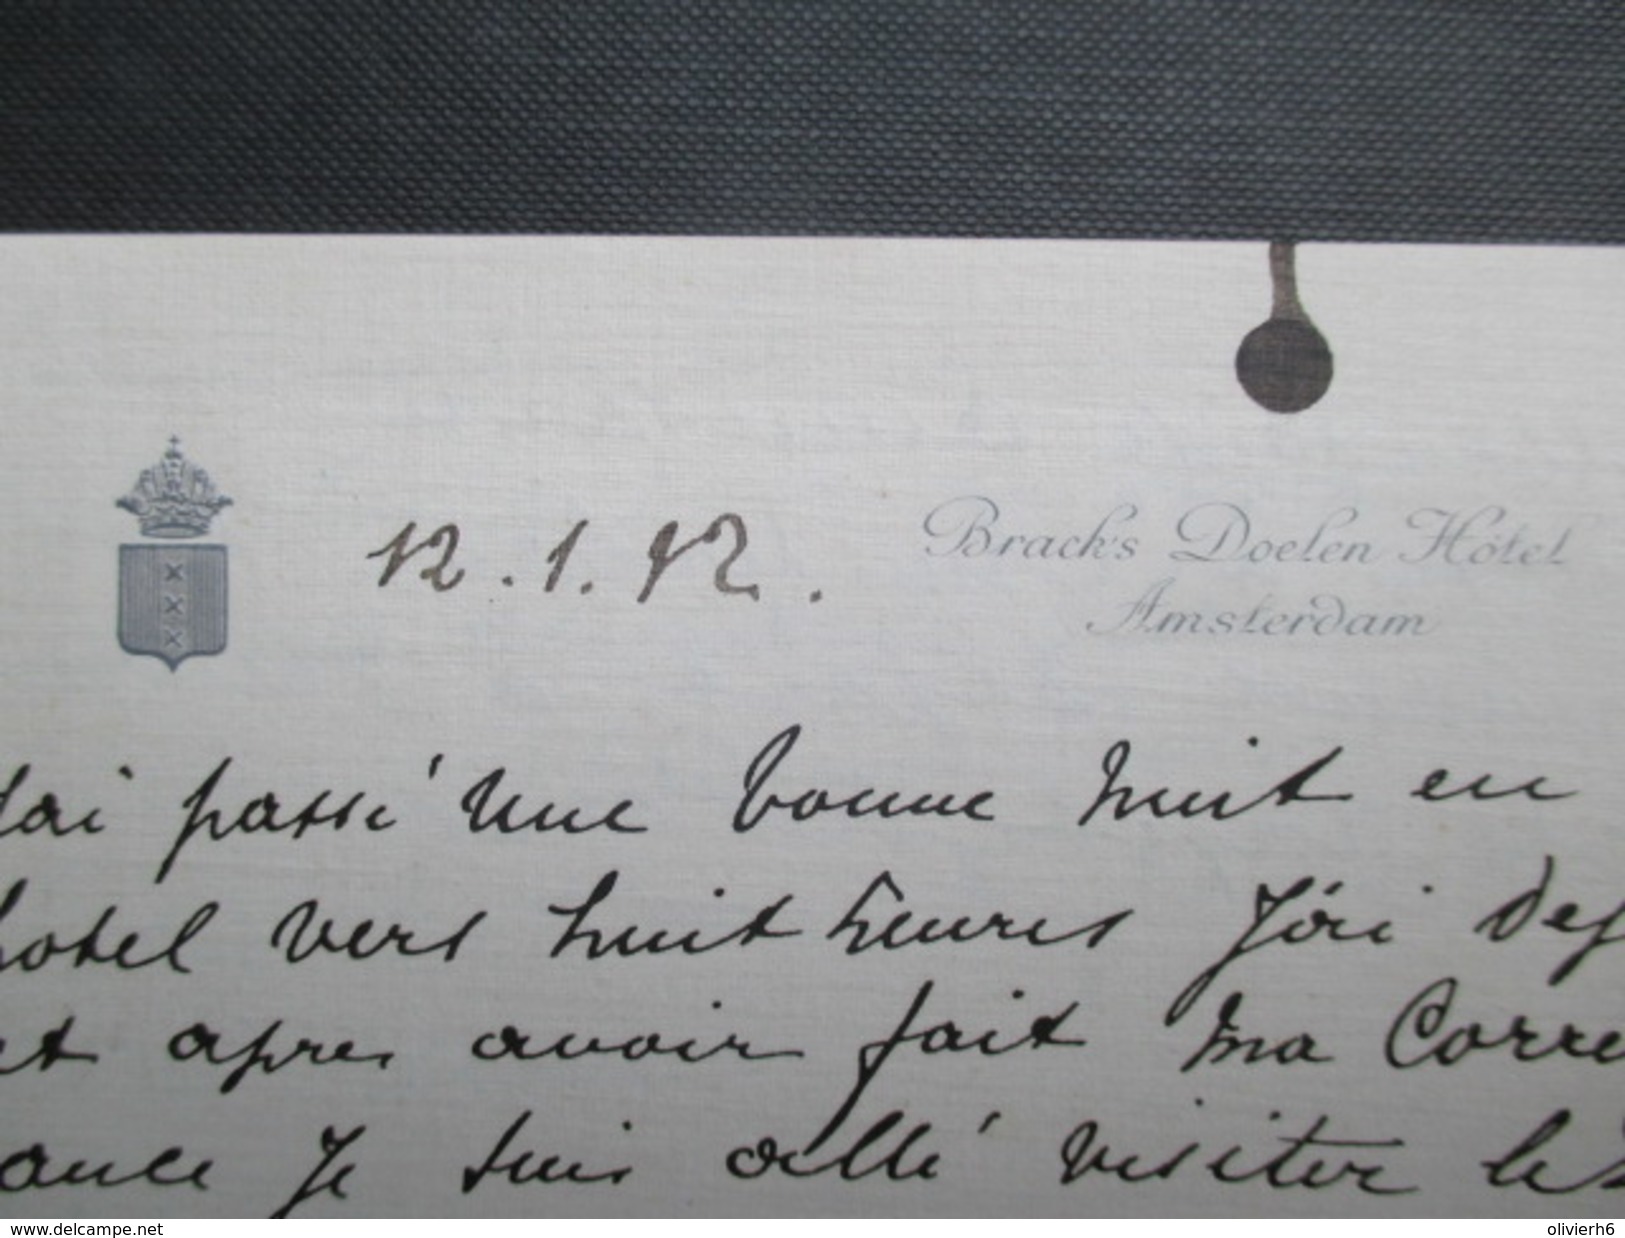 12.1.92.
Brack's Doelen Hôtel
Amsterdam
J'ai passé une bonne nuit en
hotel vers huit heures J'ai dej
et apres avoir fait ma Corre
ance Je suis allé visiter les
www.delcampe.net
olivierh6